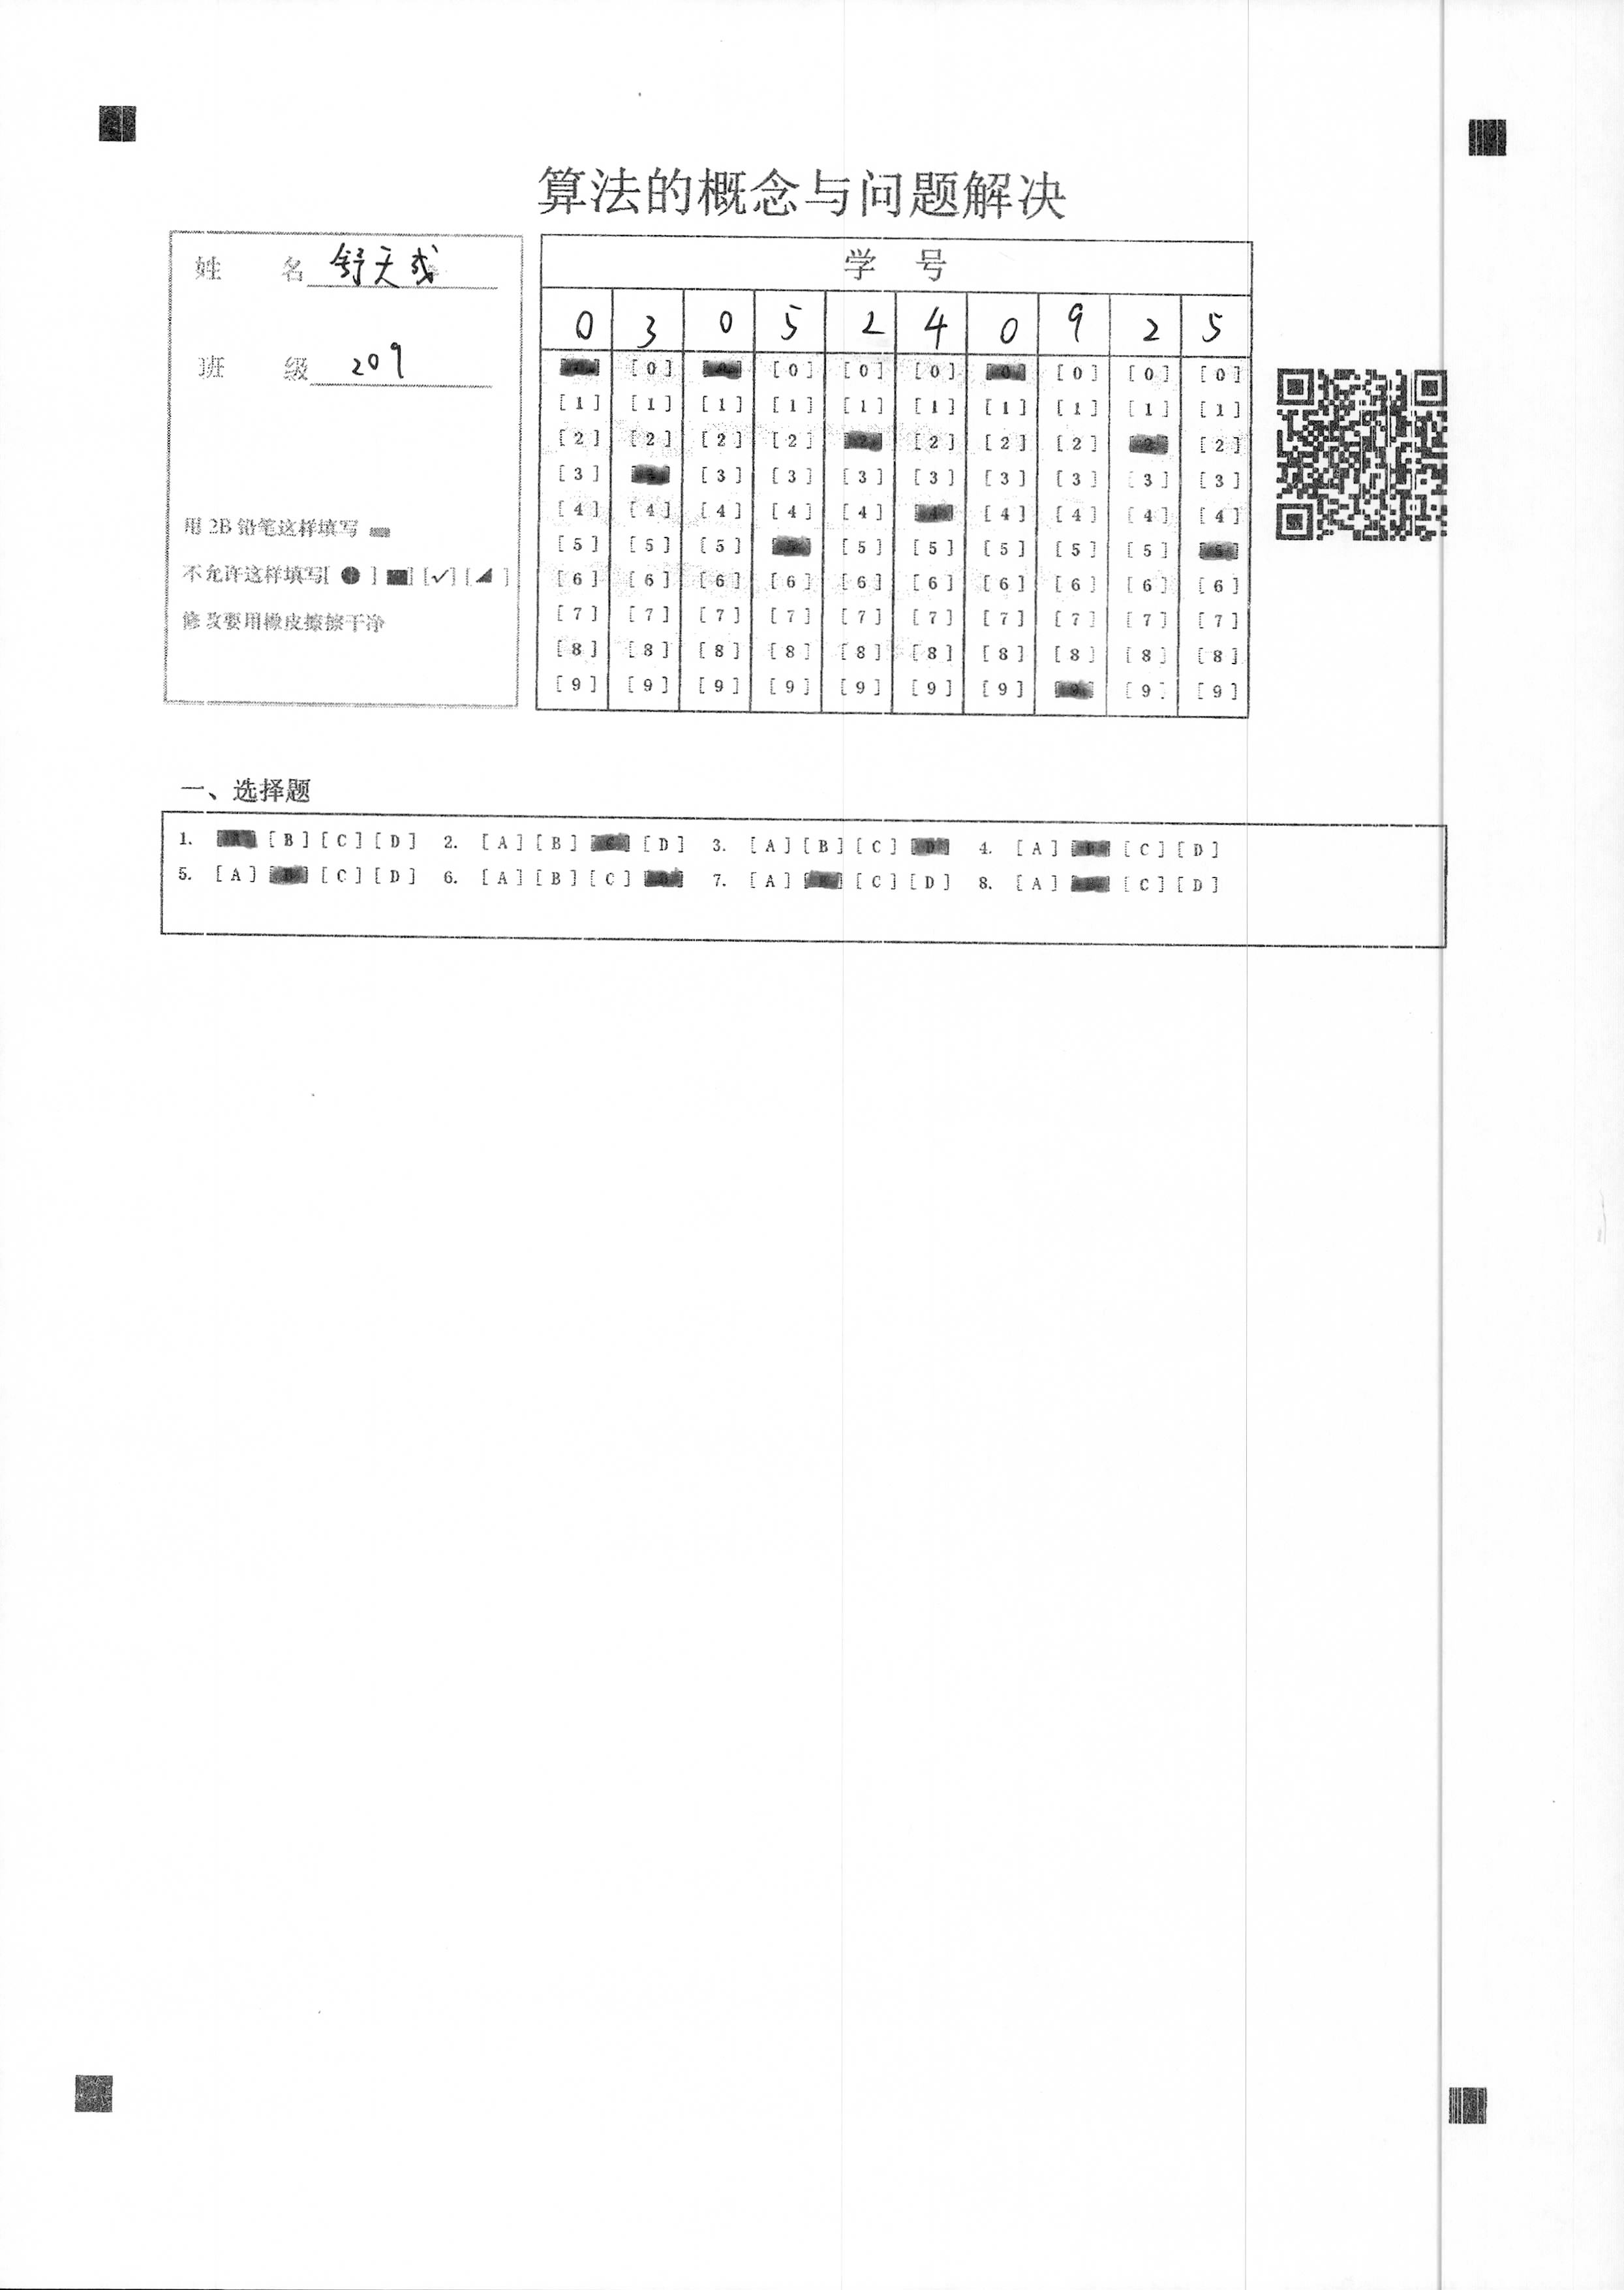 算法的概念与问题解决
姓 名 舒天彧
班 级 209
用 2B 铅笔这样填写
不允许这样填写[ ● ] ■] [✓] [◢ ]
修改要用橡皮擦擦干净
学 号
0 3 0 5 2 4 0 9 2 5
[0] [0] [0] [0] [0] [0] [0]
[1] [1] [1] [1] [1] [1] [1] [1] [1] [1]
[2] [2] [2] [2] [2] [2] [2] [2]
[3] [3] [3] [3] [3] [3] [3] [3] [3]
[4] [4] [4] [4] [4] [4] [4] [4] [4]
[5] [5] [5] [5] [5] [5] [5] [5]
[6] [6] [6] [6] [6] [6] [6] [6] [6] [6]
[7] [7] [7] [7] [7] [7] [7] [7] [7] [7]
[8] [8] [8] [8] [8] [8] [8] [8] [8] [8]
[9] [9] [9] [9] [9] [9] [9] [9] [9]
一、选择题
1. [A] [B] [C] [D] 2. [A] [B] [C] [D] 3. [A] [B] [C] [D] 4. [A] [B] [C] [D]
5. [A] [B] [C] [D] 6. [A] [B] [C] [D] 7. [A] [B] [C] [D] 8. [A] [B] [C] [D]